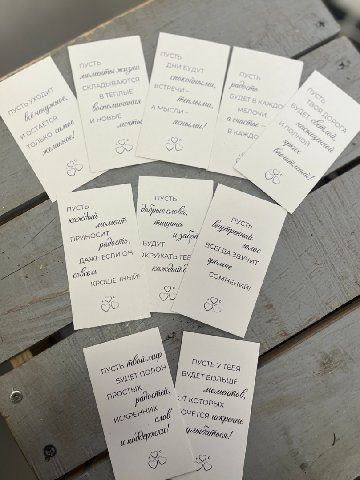 ПУСТЬ УХОДИТ
всё ненужное,
И ОСТАЁТСЯ
ТОЛЬКО самое
желанное!
ПУСТЬ
моменты жизни
СКЛАДЫВАЮТСЯ
В ТЁПЛЫЕ
воспоминания
И НОВЫЕ
мечты!
ПУСТЬ
ДНИ БУДУТ
спокойными,
ВСТРЕЧИ –
тёплыми,
А МЫСЛИ –
ясными!
ПУСТЬ
радость
БУДЕТ В КАЖДОЙ
МЕЛОЧИ,
а счастье –
В КАЖДО
ПУСТЬ
ТВОЯ ДОРОГА
БУДЕТ светлой,
И ПОЛНОЙ
ярких
впечатлений!
ПУСТЬ
каждый момент
ПРИНОСИТ
радость,
ДАЖЕ ЕСЛИ ОН
совсем
КРОШЕЧНЫЙ!
ПУСТЬ
добрые слова,
тишина
и забота
БУДУТ
ОКРУЖАТЬ ТЕБЯ
каждый
ПУСТЬ
внутренний голос
ВСЕГДА ЗВУЧИТ
громче
СОМНЕНИЙ!
ПУСТЬ твой мир
БУДЕТ ПОЛОН
ПРОСТЫХ
радостей,
ИСКРЕННИХ
слов
и поддержки!
ПУСТЬ У ТЕБЯ
БУДЕТ БОЛЬШЕ
моментов,
ОТ КОТОРЫХ
ХОЧЕТСЯ искренне
улыбаться!